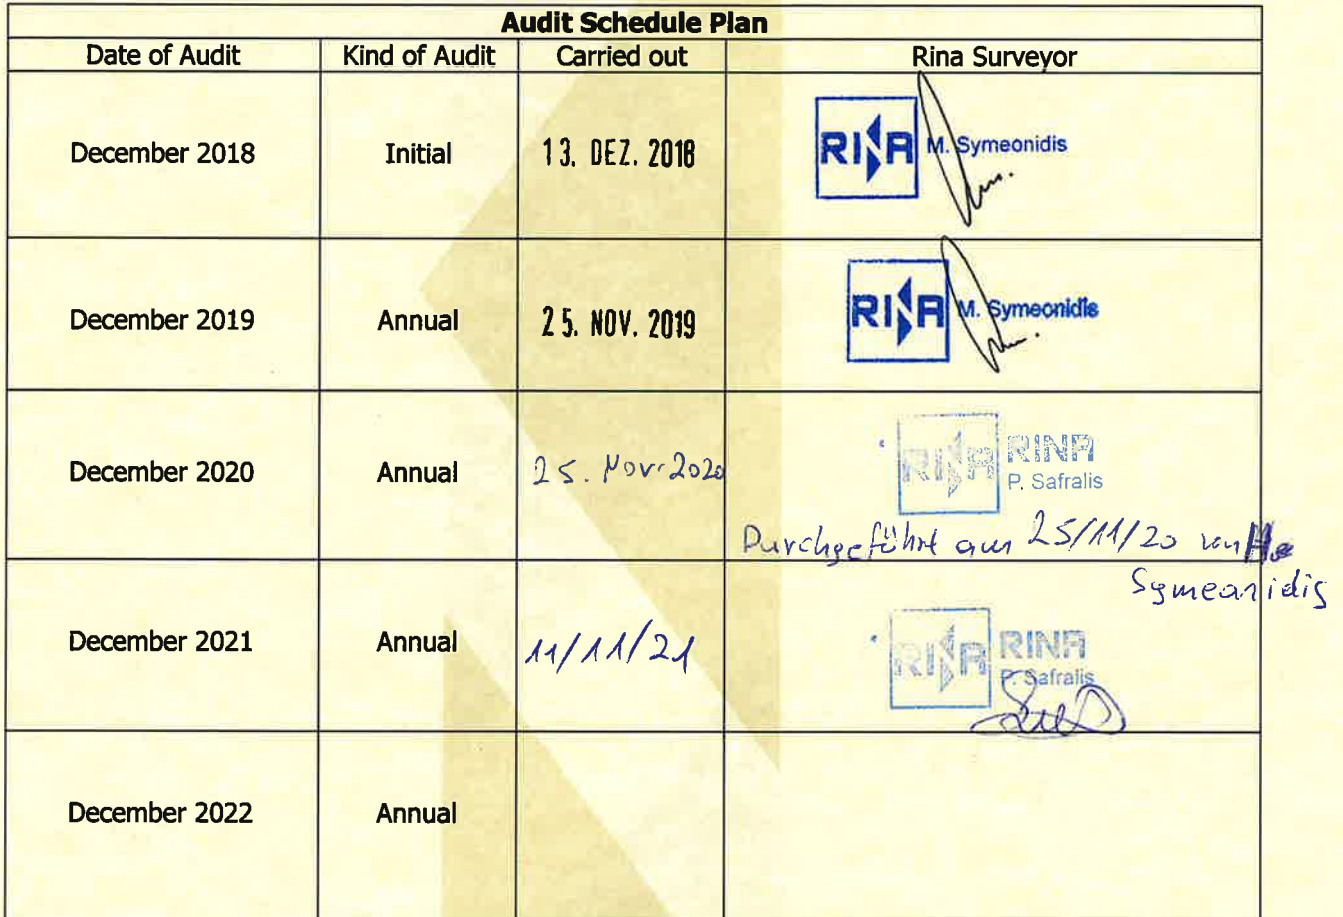 Audit Schedule Plan
Date of Audit Kind of Audit Carried out Rina Surveyor
December 2018 Initial 13. DEZ. 2018 RINA M. Symeonidis
December 2019 Annual 25. NOV. 2019 RINA M. Symeonidis
December 2020 Annual 25. Nov. 2020 RINA RINA
P. Safralis
Durchgeführt am 25/11/20 von
Symeonidis
December 2021 Annual 11/11/21 RINA RINA
P. Safralis
December 2022 Annual